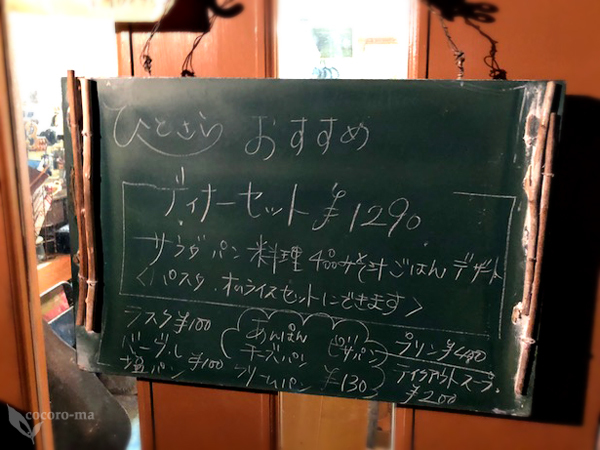 ひとさら おすすめ
ディナーセット ¥1290
サラダ パン 料理 みそ汁 ごはん デザート
<パスタ、オムライスセットにできます>
ラスク ¥100
ベーグル
塩パン ¥100
あんぱん
チーズパン ピザパン
クリームパン ¥130
プリン
テイクアウトスープ
¥200
cocoro-ma